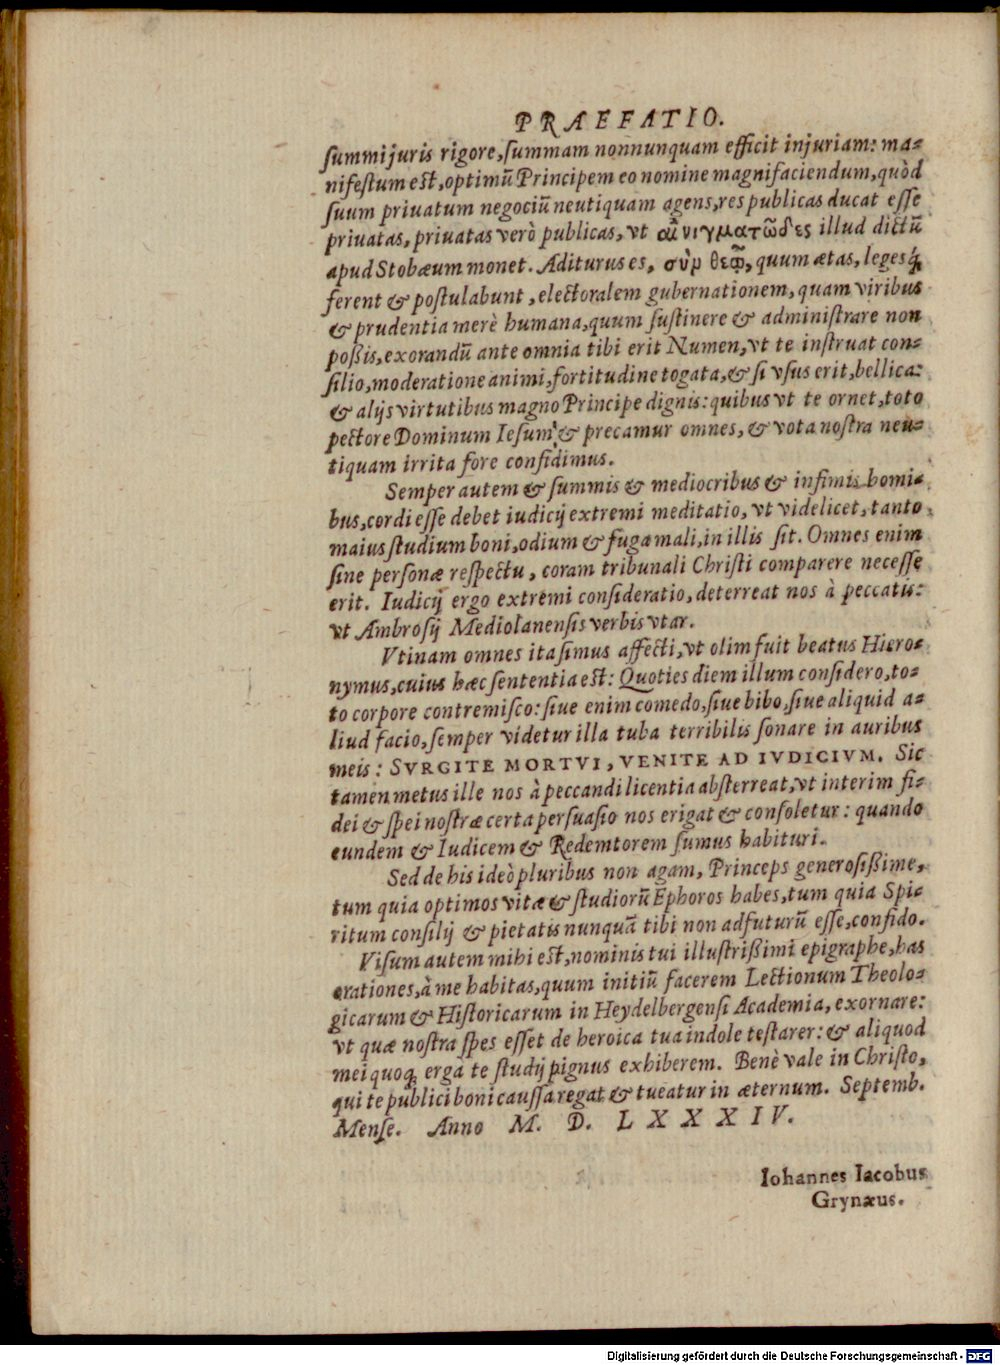 PRÆFATIO.
ſummi juris rigore, ſummam nonnunquam efficit injuriam: ma-
nifeſtum eſt, optimū Principem eo nomine magnifaciendum, quòd
ſuum priuatum negociū neutiquam agens, res publicas ducat eſſe
priuatas, priuatas verò publicas, vt αἰνιγματῶδες illud dictū
apud Stobæum monet. Aditurus es, σὺν θεῷ, quum ætas, legesq́;
ferent & poſtulabunt, electoralem gubernationem, quam viribus
& prudentia merè humana, quum ſuſtinere & adminiſtrare non
poßis, exorandū ante omnia tibi erit Numen, vt te inſtruat con-
ſilio, moderatione animi, fortitudine togata, & ſi vſus erit, bellica:
& alijs virtutibus magno Principe dignis: quibus vt te ornet, toto
pectore Dominum Ieſum & precamur omnes, & vota noſtra neu-
tiquam irrita fore confidimus.
Semper autem & ſummis & mediocribus & infimis homi-
bus, cordi eſſe debet iudicij extremi meditatio, vt videlicet, tanto
maius ſtudium boni, odium & fuga mali, in illis ſit. Omnes enim
ſine perſonæ reſpectu, coram tribunali Chriſti comparere neceſſe
erit. Iudicij ergo extremi conſideratio, deterreat nos à peccatis:
vt Ambroſij Mediolanenſis verbis vtar.
Vtinam omnes ita ſimus affecti, vt olim fuit beatus Hiero-
nymus, cuius hæc ſententia eſt: Quoties diem illum conſidero, to-
to corpore contremiſco: ſiue enim comedo, ſiue bibo, ſiue aliquid a-
liud facio, ſemper videtur illa tuba terribilis ſonare in auribus
meis: SVRGITE MORTVI, VENITE AD IVDICIVM. Sic
tamen metus ille nos à peccandi licentia abſterreat, vt interim fi-
dei & ſpei noſtræ certa perſuaſio nos erigat & conſoletur: quando
eundem & Iudicem & Redemtorem ſumus habituri.
Sed de his ideò pluribus non agam, Princeps generoſißime,
tum quia optimos vitæ & ſtudiorū Ephoros habes, tum quia Spi-
ritum conſilij & pietatis nunquā tibi non adfuturū eſſe, confido.
Viſum autem mihi eſt, nominis tui illuſtrißimi epigraphe, has
orationes, à me habitas, quum initiū facerem Lectionum Theolo-
gicarum & Hiſtoricarum in Heydelbergenſi Academia, exornare:
vt quæ noſtra ſpes eſſet de heroica tua indole teſtarer: & aliquod
mei quoq; erga te ſtudij pignus exhiberem. Benè vale in Chriſto,
qui te publici boni cauſſa regat & tueatur in æternum. Septemb.
Menſe. Anno M. D. LXXXIV.
Iohannes Iacobus
Grynæus.
Digitalisierung gefördert durch die Deutsche Forschungsgemeinschaft - DFG